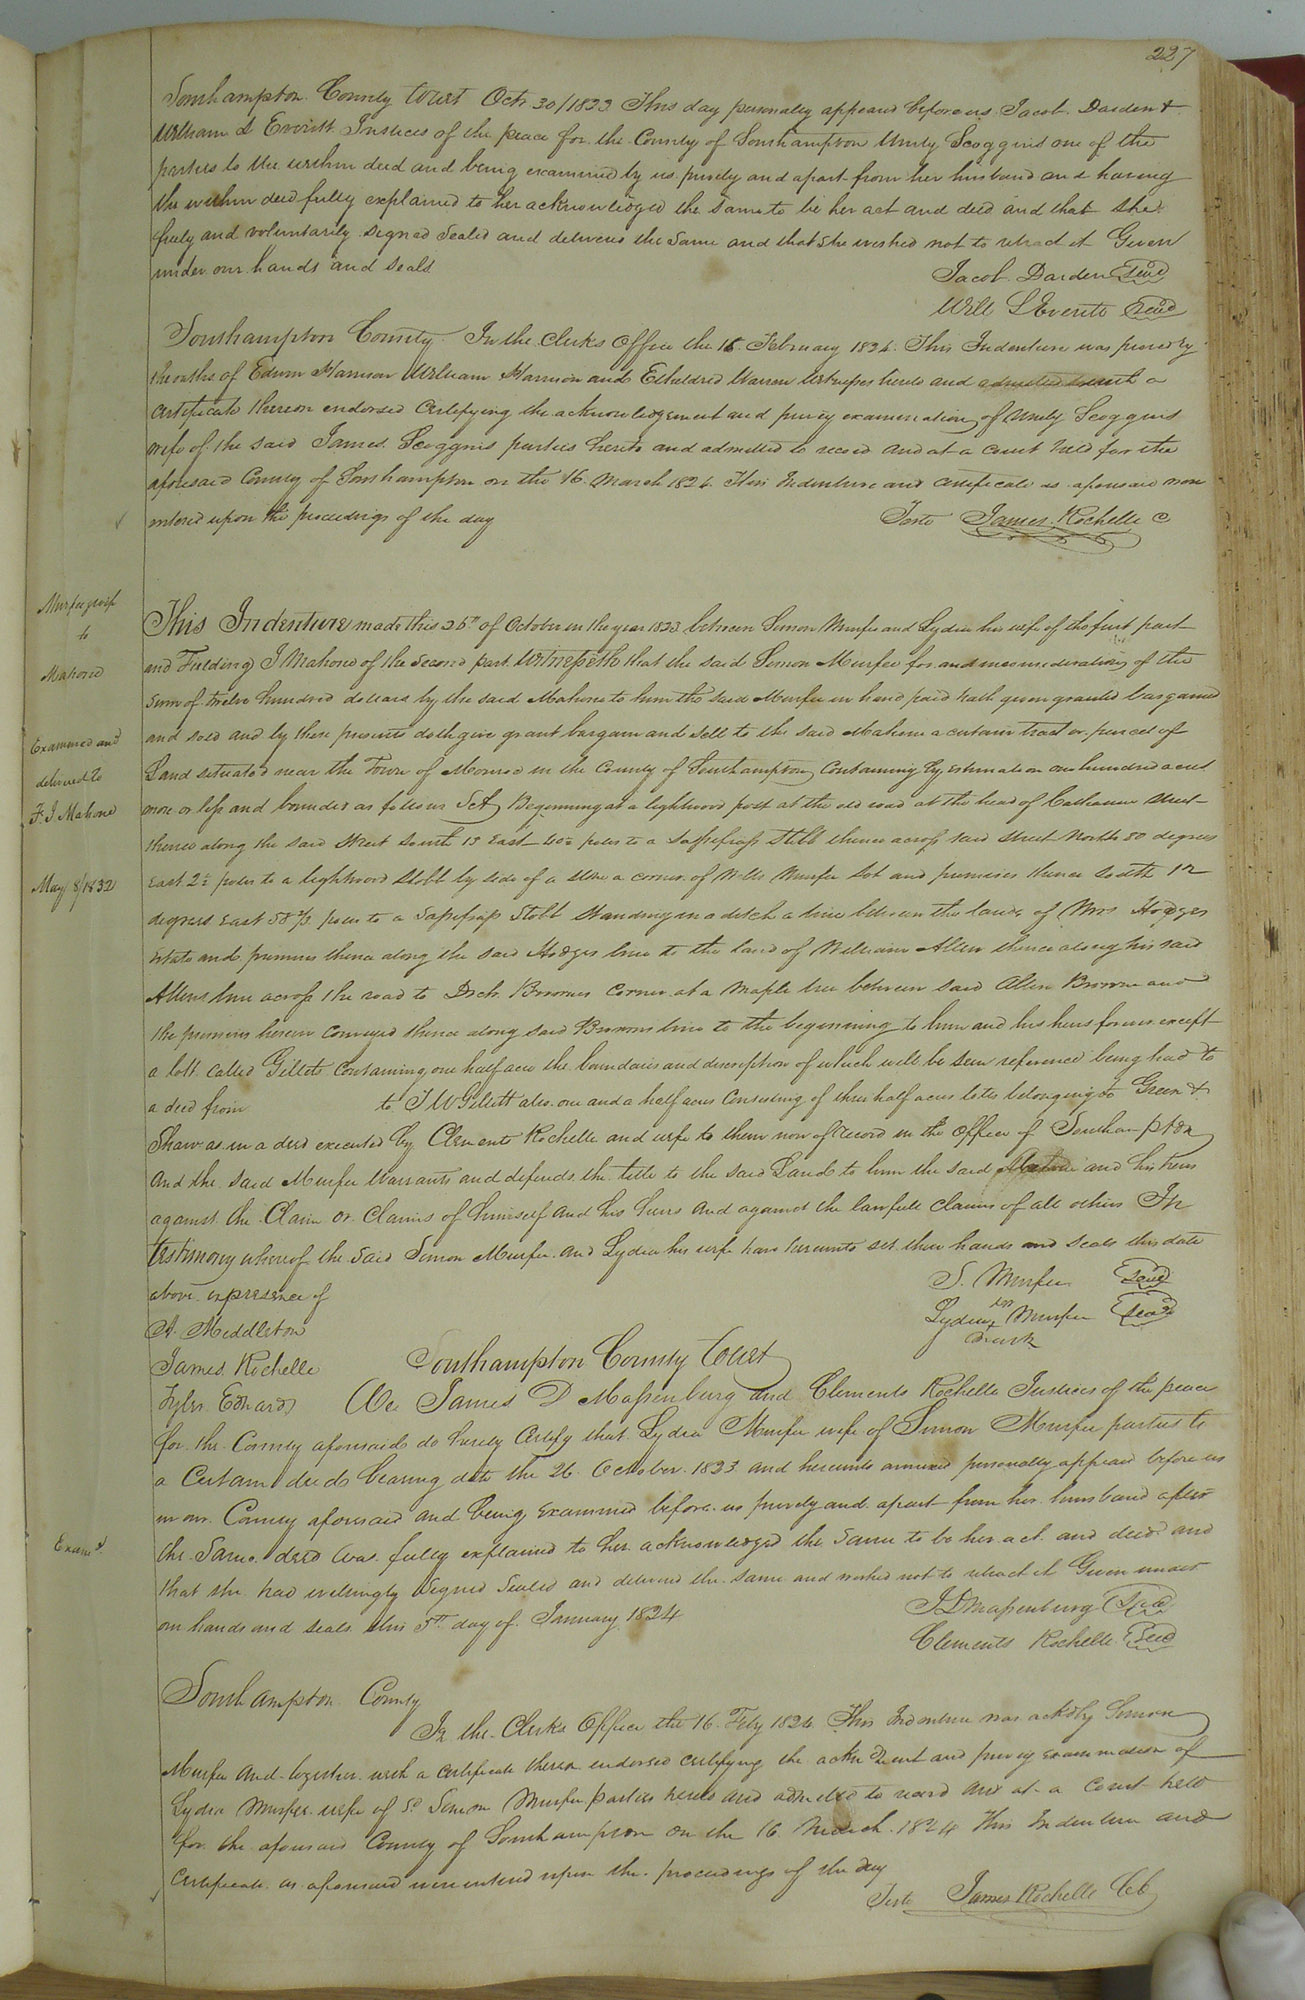 227
Southampton County Court Octr 30/1823 This day personally appeared before us Jacob Darden &
William L Everitt Justices of the peace for the County of Southampton Unity Scoggins one of the
parties to the within deed and being examined by us privily and apart from her husband and having
the within deed fully explained to her acknowledged the same to be her act and deed and that she
freely and voluntarily signed sealed and delivered the same and that she wished not to retract it Given
under our hands and seals
Jacob Darden Seal
Will L Everitt Seal
Southampton County In the Clerks Office the 16 February 1824 This Indenture was proved by
the oaths of Edwin Harrison William Harrison and Etheldred Warren Witnesses hereto and a
certificate thereon endorsed Certifying the acknowledgement and privy examination of Unity Scoggins
wife of the said James Scoggins parties hereto and admitted to record and at a Court held for the
aforesaid County of Southampton on the 16 March 1824 This Indenture and certificate as aforesaid were
entered upon the proceedings of the day
Teste James Rochelle C
Murfee & wife
to
Mahone
Examined and
delivered to
F. J Mahone
May 8/1832
This Indenture made this 26th of October in the year 1823 between Simon Murfee and Lydia his wife of the first part
and Fielding J Mahone of the second part Witnesseth that the said Simon Murfee for and in consideration of the
sum of twelve hundred dollars by the said Mahone to him the said Murfee in hand paid hath given granted bargained
and sold and by these presents doth give grant bargain and sell to the said Mahone a certain tract or parcel of
Land situated near the Town of Monroe in the County of Southampton Containing by estimation one hundred acres
more or less and bounded as follows Sct Beginning at a lightwood post at the old road at the head of Catharine Street
thence along the said Street South 13 East 40 poles to a Sassafrass Stobb thence across said street North 80 degrees
East 2 poles to a lightwood Stobb by side of a a corner of Murfee Lot and premises thence South 12
degrees East 58 poles to a Sassafrass Stobb Standing in a ditch a line between the lands of Mrs Hodges
Estate and premises thence along the said Hodges line to the land of William Allen thence along his said
Allens line across the road to Doctr Browns Corner at a Maple tree between said Allen Browne and
the premises herein conveyed thence along said Browns line to the beginning to him and his heirs forever except
a lott called Gilletts Containing one half acre the boundaries and description of which will be seen reference being had to
a deed from to J W Gillett also one and a half acres Consisting of three half acres lotts belonging to Green &
Shaw as in a deed executed by Clements Rochelle and wife to them now of record in the office of Southampton
And the said Murfee Warrants and defends the title to the said Land to him the said Mahone and his heirs
against the Claim or Claims of himself and his heirs and against the lawfull claims of all others In
testimony whereof the said Simon Murfee and Lydia his wife have hereunto set their hands and seals this date
above in presence of
S. Murfee Seal
A. Middleton
her
Lydia x Murfee Seal
mark
James Rochelle
Southampton County Court
We James D Massenburg and Clements Rochelle Justices of the peace
for the County aforesaid do hereby Certify that Lydia Murfee wife of Simon Murfee parties to
a Certain deed bearing date the 26 October 1823 and hereunto annexed personally appeard before us
in our County aforesaid and being Examined before us privily and apart from her husband after
the same deed was fully explained to her acknowledged the same to be her act and deed and
that she had willingly signed sealed and delivered the same and wished not to retract it Given under
our hands and seals this 5th day of January 1824
Examd
J D Massenburg Seal
Clements Rochelle Seal
Southampton County
In the Clerks Office the 16 Feby 1824 This Indenture was ackd by Simon
Murfee and together with a certificate thereon endorsed certifying the acknowledgment and privy examination of
Lydia Murfee wife of sd Simon Murfee parties hereto and admitted to record and at a Court held
for the aforesaid County of Southampton on the 16 March 1824 This Indenture and
Certificate as aforesaid were entered upon the proceedings of the day
Teste James Rochelle CC